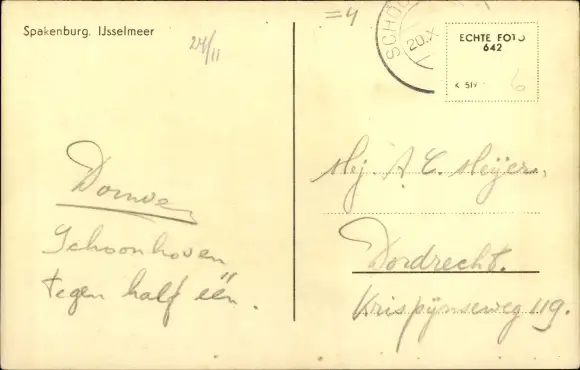 Spakenburg. IJsselmeer
24/11
=4
SCHOO
20.X
ECHTE FOTO
642
K 519
6
Schoonhoven
tegen half één.
Mej. A. C. Meijer.
Dordrecht.
Krispijnseweg 119.